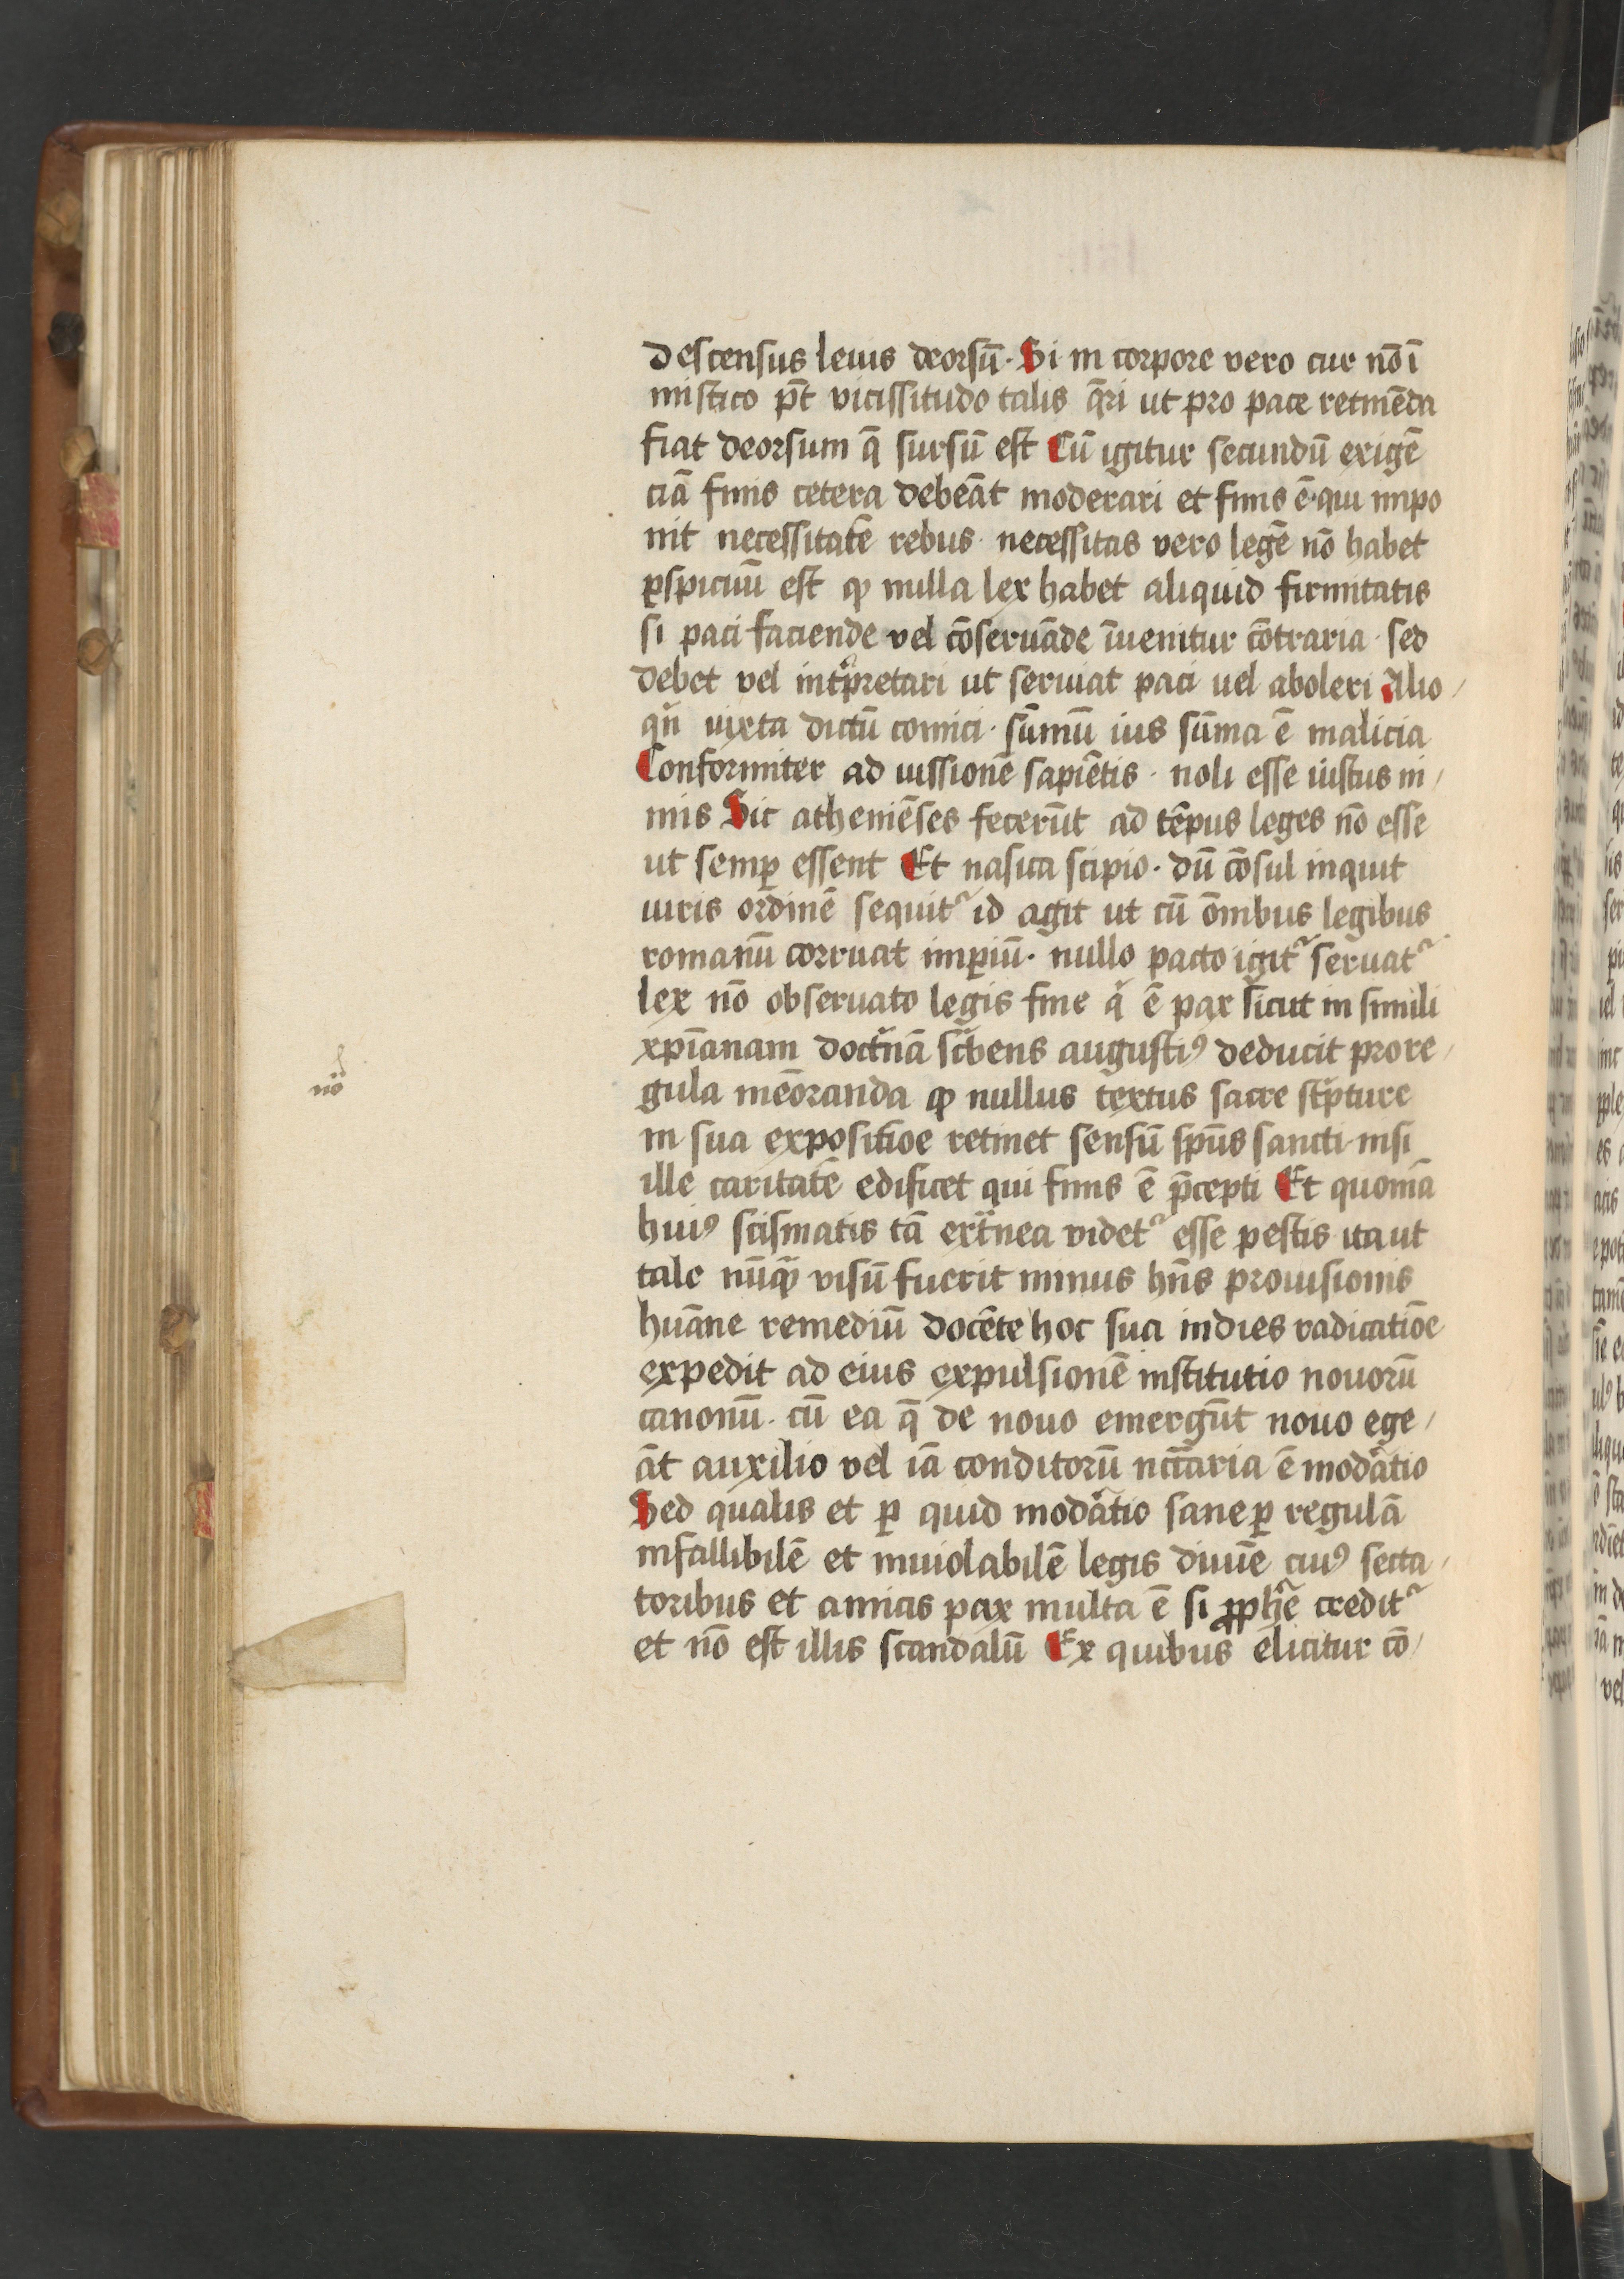 descensus leuis deorsū. Si in corpore vero cur nō ī
mistico pt̄ vicissitudo talis q̄ri ut pro pace retinēda
fiat deorsum q̄ sursū est Cū igitur secundū exigē
ciā finis cetera debeāt moderari et finis ē. qui impo
nit necessitatē rebus. necessitas vero legē nō habet
ꝑspicuū est ꝙ nulla lex habet aliquid firmitatis
si paci faciende vel cōseruāde īuenitur cōtraria. sed
debet vel intꝑpretari ut seruiat paci uel aboleri Alio /
qn̄ iuxta dictū comici. sūmū ius sūma ē malicia
Conformiter ad iussionē sapiētis. noli esse iustus ni /
mis Sic atheniēses fecerūt ad tēpus leges nō esse
ut semꝑ essent Et nasica scipio. dū cōsul inquit
iuris ordinē sequit᷑ id agit ut cū ōnibus legibus
romanū corruat imꝑiū. nullo pacto igit᷑ seruat᷑
lex nō obseruato legis fine q̄ ē pax sicut in simili
xp̄ianam doctⁱnā scⁱbens augustiꝰ deducit pro re /
gula mēoranda ꝙ nullus textus sacre scⁱpture
nō
in sua expositiōe retinet sensū sp̄us sancti nisi
ille caritatē edificet qui finis ē p̄cepti Et quoniā
huiꝰ scismatis tā extⁿnea videt᷑ esse pestis ita ut
tale nūꝙ visū fuerit minus hn̄s prouisionis
huāne remediū docēte hoc sua indies radicatiōe
expedit ad eius expulsionē institutio nouorū
canonū. cū ea q̄ de nouo emergūt nouo ege /
āt auxilio vel iā conditorū nccāria ē modātio
Sed qualis et ꝑ quid modātio sane ꝑ regulā
infallibilē et inuiolabilē legis diuīe cuiꝰ secta /
toribus et amicis pax multa ē si ꝓphē credit᷑
et nō est illis scandalū Ex quibus elicitur cō /